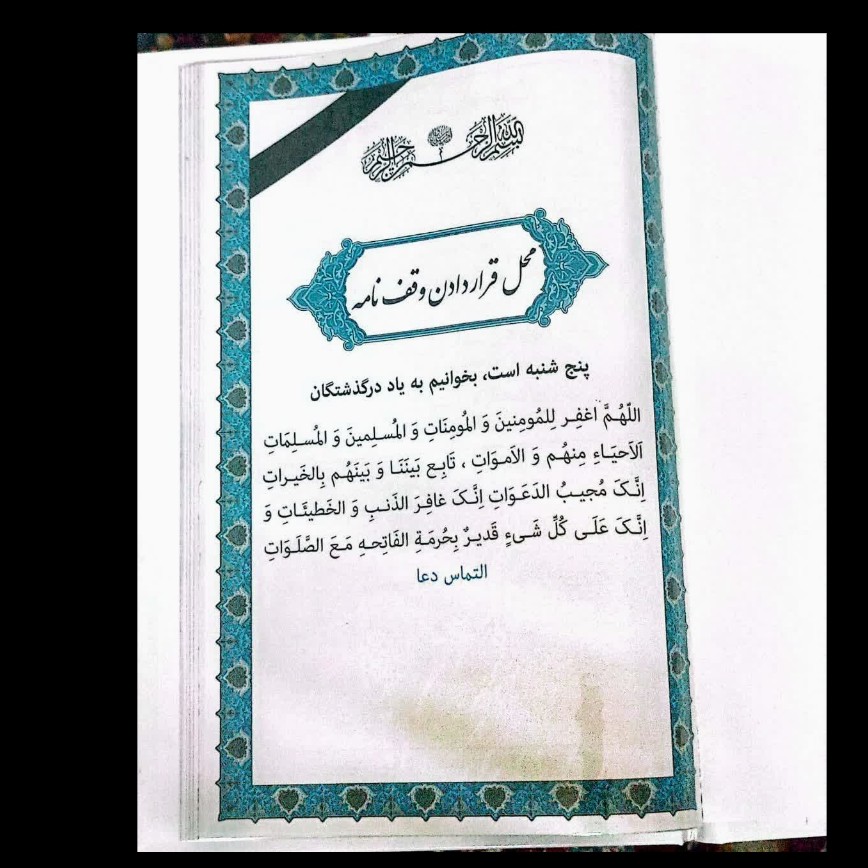 بسم الله الرحمن الرحیم
محل قرار دادن وقف نامه
پنج شنبه است، بخوانیم به یاد درگذشتگان
اللّهُمَّ اغفِر لِلمُومِنینَ وَ المُومِنَاتِ وَ المُسلِمینَ وَ المُسلِمَاتِ
اَلاَحیَاءِ مِنهُم وَ الاَموَاتِ ، تَابِع بَینَنَا وَ بَینَهُم بِالخَیراتِ
اِنَّکَ مُجیبُ الدَعَوَاتِ اِنَّکَ غافِرَ الذَنبِ وَ الخَطیئَاتِ وَ
اِنَّکَ عَلَی کُلِّ شَیءٍ قَدیرٌ بِحُرمَةِ الفَاتِحهِ مَعَ الصَّلَوَاتِ
التماس دعا